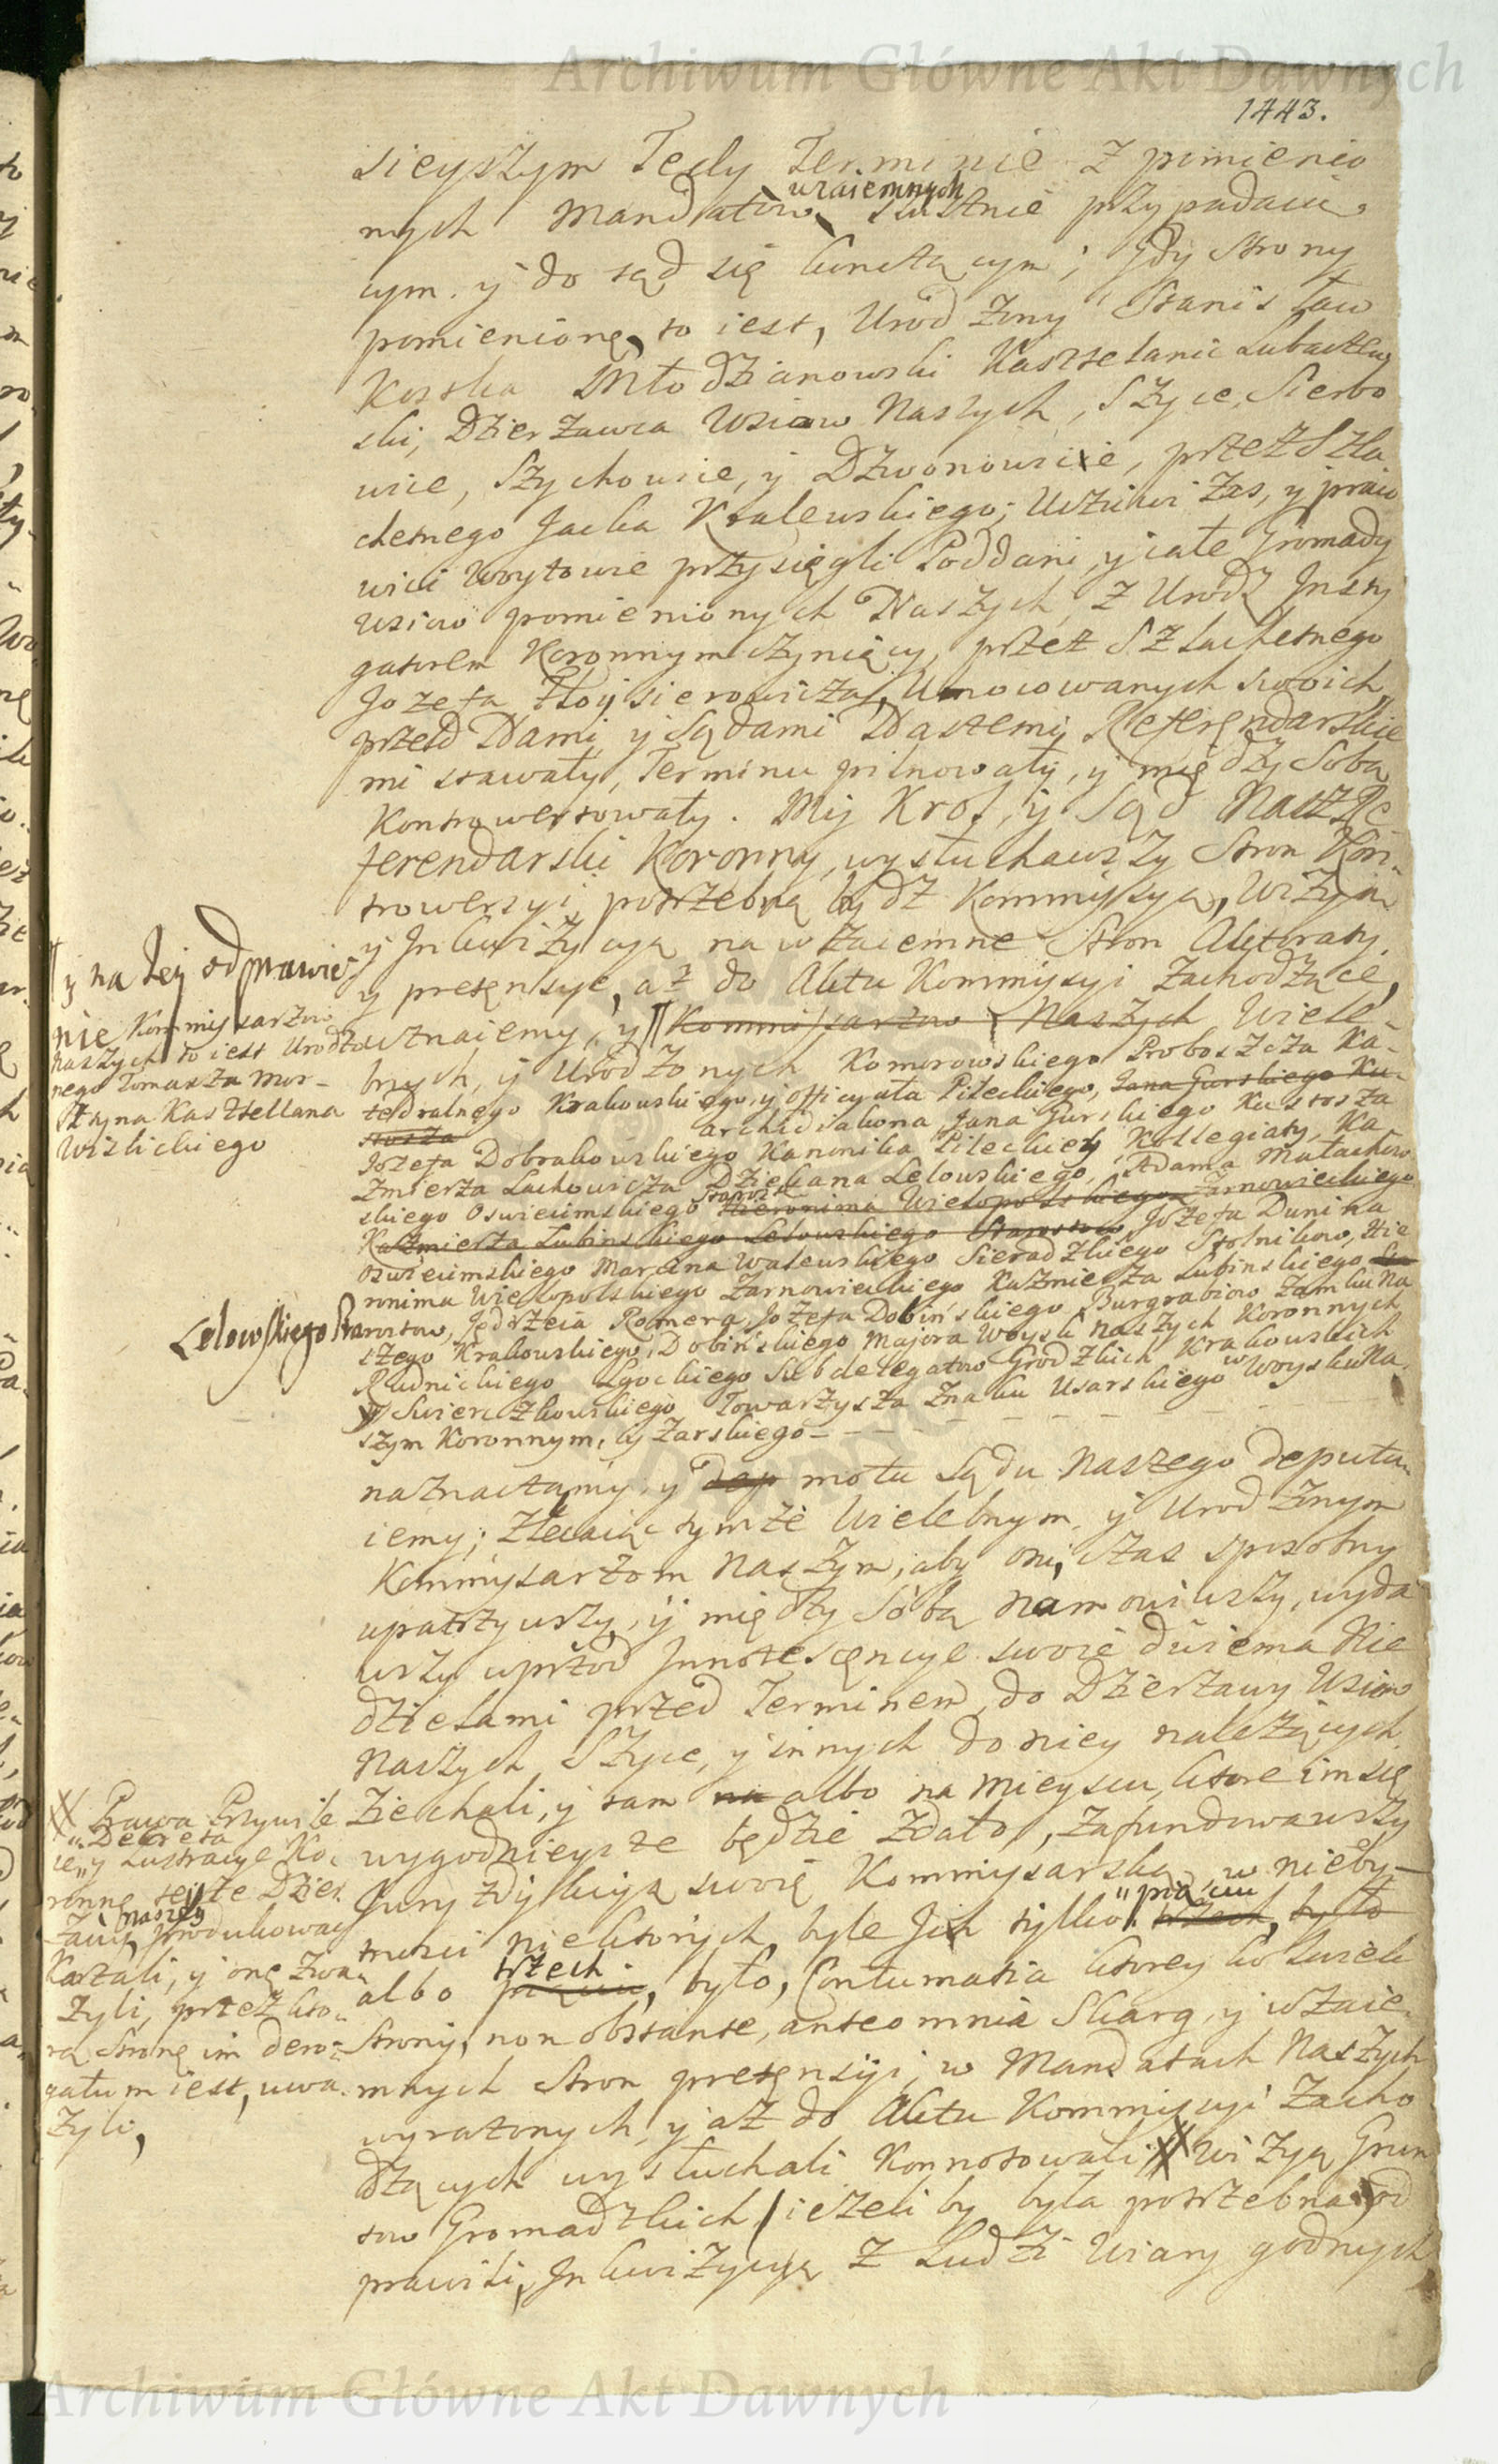 Archiwum Główne Akt Dawnych
1443.
sieyszym Tedy Terminie z pomienio
nych Mandatow wzaiemnych słusznie przypadaią
cym y do sąd się
pomienione, to iest, Urodzony Stanisław
Kostka Młodzianowski Kasztelanic
ski, Dzierzawca Wsiow Naszych, Szyce, Sierbo
wice, Szychowice, y Dzwonowice, przez Szla
chetnego Jacka Kralewskiego; Uczciwi Zas, y praco
wici Woytowie przysięgli Poddani, y całe Gromady
Wsiow pomienionych Naszych, z Urodz Insty
gatorem Koronnym czyniący, przez Szlachetnego
Jozefa Umocowanych swoich,
przed Nami, y Sądami Naszemi Referendarskie
mi stawały, Terminu pilnowały, y między Sobą
Kontrowertowały. My Krol, y Sąd Nasz Re
ferendarski Koronny, wysłuchawszy Stron Kon-
trowersyi, potrzebną bydz Kommissyą, Wizyą
y Inkwizycyą na wzaiemne Stron Aktoraty,
y pretensye, aż do Aktu Kommissyi zachodzące,
uznaiemy, y Kommissarzow Naszych Wiele-
bnych, y Urodzonych Komorowskiego Proboszcza Ka-
tedralnego Krakowskiego, y officyała Pileckiego, Jana Gurskiego Ku-
stosza archidiakona Jana Gurskiego Kustosza
Jozefa Dobrakowskiego Kanonika Pileckiey Kollegiaty, Ka
zmierza Lachowicza Dziekana Lelowskiego, Adama Małachow
skiego Oswiecimskiego Hieronima Wielopolskiego Zarnowieckiego
Kazmierza Łubinskiego Lelowskiego Starostow Jozefa Dunina
Oswiecimskiego Marcina Walewskiego Sieradzkiego Stolnikow, Hie
ronima Wielopolskiego Zarnowieckiego Kazmierza Łubinskiego
Starostow, Jędrzeia Romera, Jozefa Dobińskiego Burgrabiow Zamku Na
szego Krakowskiego, Dobińskiego Majora Woysk Naszych Koronnych
Rudnickiego Łgockiego Subdelegatow Grodzkich Krakowskich
Swierczkowskiego Towarzysza Znaku Usarskiego w Woysku Na
szym Koronnym, y Zarskiego - - - -
naznaczamy, y dep mota Sądu Naszego deputu
iemy; Zlecaiąc tymze Wielebnym, y Urodzonym
Kommysarzom Naszym, aby oni, czas sposobny
upatrzywszy, y między Sobą namowiwszy, wyda
wszy wprzod Innotescencye swoie dwiema Nie
dzielami przed Terminem, do Dzierzawy Wsiow
Naszych, Szyce, y innych do niey należących
Ziechali, y tam na albo na Mieyscu, ktore im się
wygodnieysze będzie zdało, zafundowawszy
Juryzdykcyą swoię Kommysarską, w nieby-
tnosci niektorych, byle Jch tylko pięciu trzech, było
albo trzech pięciu, było, Contumatia ktorey kolwiek
Strony, non obstante, ante omnia Skarg, y wzaie-
mnych Stron pretensyi, w Mandatach Naszych
wyrażonych, y aż do Aktu Kommissyi zacho
dzących wysłuchali Konnotowali Wizyą Grun
tow Gromadzkich, ieżeliby była potrzebna, od
prawili, Inkwizycyą z Ludzi Wiary godnych
y na Jey odprawie-
nie Kommysarzow
Naszych to iest Urodzo
nego Tomasza Mor-
sztyna Kasztellana
Wislickiego
Lelowskiego
Prawa Przywile
ie Dekreta y Lustracye Ko
ronne teyże Dzier
żawy Naszey produkować
Kazali, y one zwa-
żyli, przez kto-
rą Stronę im dero-
gatum iest, uwa
żyli,
Archiwum Główne Akt Dawnych